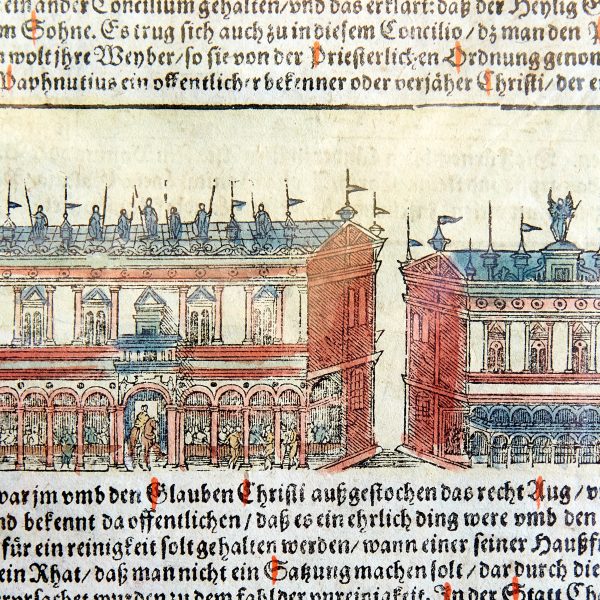 ein ander Concilium gehalten/vnd das erklärt: daß der Heylig G
m Sohne. Es trug sich auch zu in diesem Concilio/dz man den
n wolt jhre Weyber/so sie von der Priesterlichen Ordnung genom
Paphnutius ein offentlicher bekenner oder verjäher Christi/der e
war jm vmb den Glauben Christi außgestochen das recht Aug/v
nd bekennt da offentlichen/daß es ein ehrlich ding were vmb den
für ein reinigkeit solt gehalten werden/wann einer seiner Haußf
ein Rhat/daß man nicht ein Satzung machen solt/dar durch die
verursachet wurden zu dem fahl der vnreinigkeit. In der Statt Cha